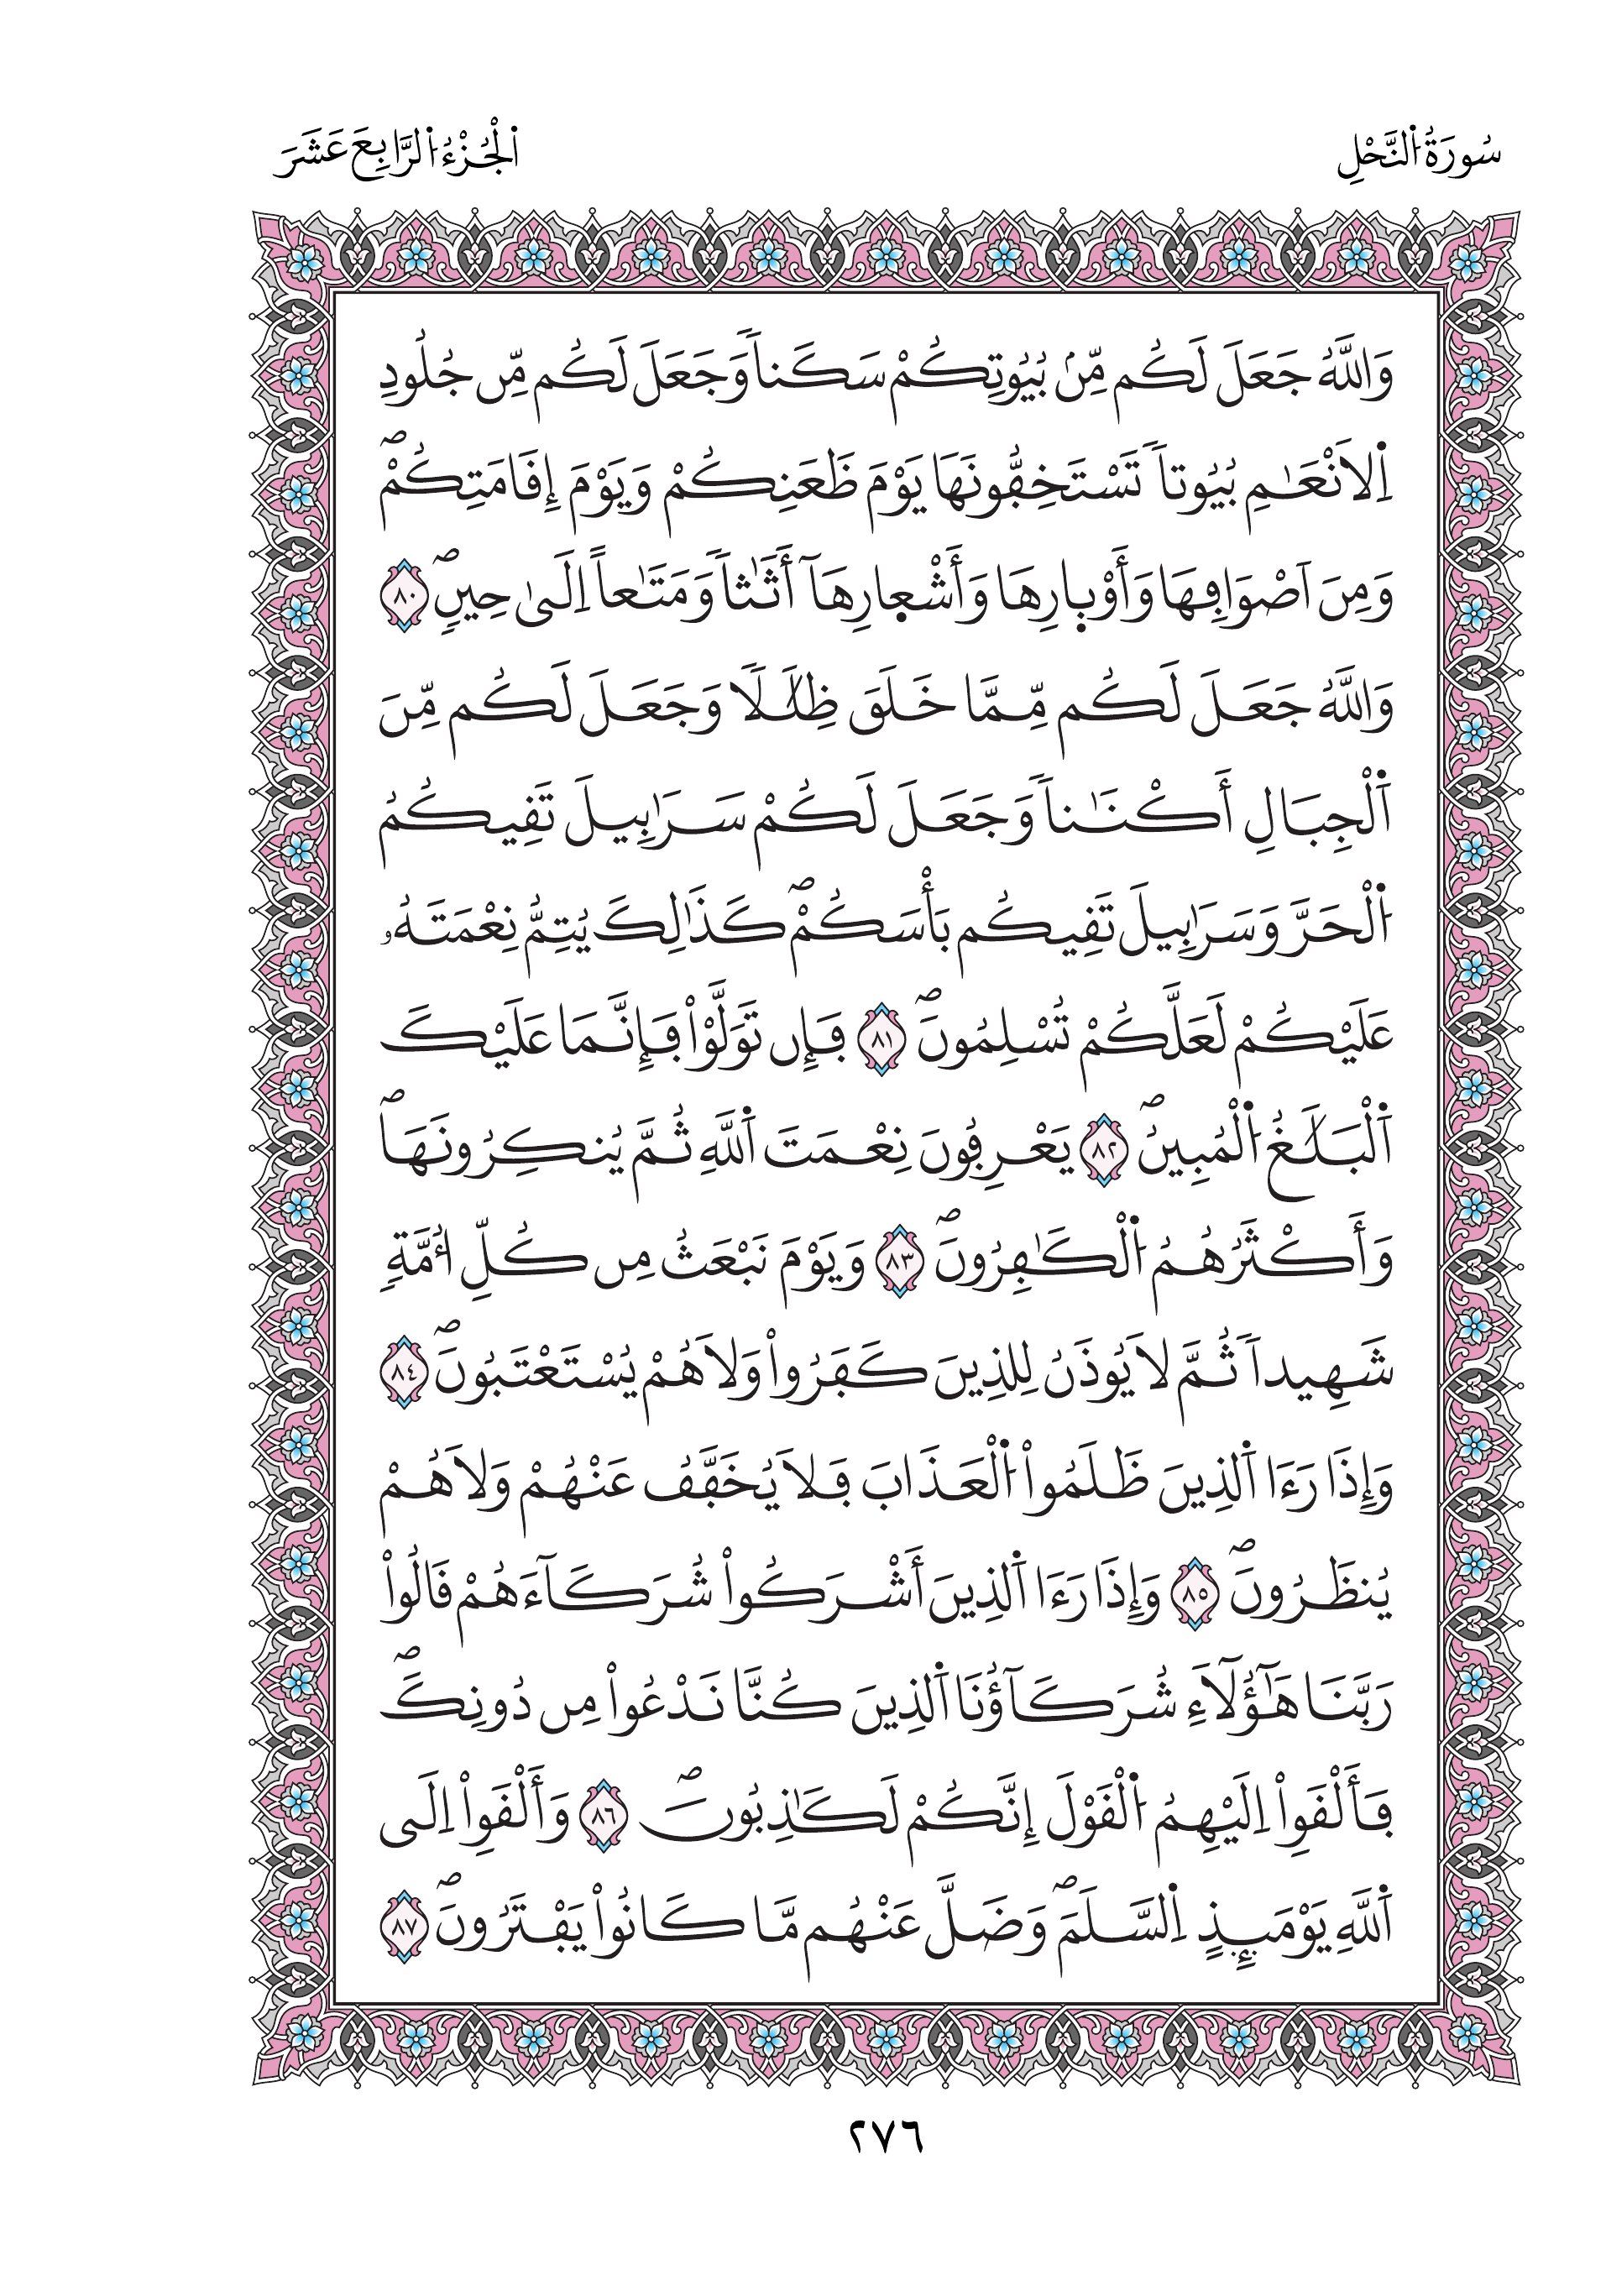 سُورَةُ اُ۬لنَّحْلِ
اُ۬لْجُزْءُ اُ۬لرَّابِعَ عَشَرَ
وَاللَّهُ جَعَلَ لَكُم مِّنۢ بُيُوتِكُمْ سَكَناٗ وَجَعَلَ لَكُم مِّن جُلُودِ
اِ۬لَانْعَٰمِ بُيُوتاٗ تَسْتَخِفُّونَهَا يَوْمَ ظَعَنِكُمْ وَيَوْمَ إِقَامَتِكُمْۖ
وَمِنَ اَصْوَافِهَا وَأَوْبِارِهَا وَأَشْعِارِهَآ أَثَٰثاٗ وَمَتَٰعاً اِلَىٰ حِينٖۖ ٨٠
وَاللَّهُ جَعَلَ لَكُم مِّمَّا خَلَقَ ظِلَٰلاٗ وَجَعَلَ لَكُم مِّنَ
اَ۬لْجِبَالِ أَكْنَٰناٗ وَجَعَلَ لَكُمْ سَرَٰبِيلَ تَقِيكُمُ
اُ۬لْحَرَّ وَسَرَٰبِيلَ تَقِيكُم بَأْسَكُمْۖ كَذَٰلِكَ يُتِمُّ نِعْمَتَهُۥ
عَلَيْكُمْ لَعَلَّكُمْ تُسْلِمُونَۖ ٨١ فَإِن تَوَلَّوْاْ فَإِنَّمَا عَلَيْكَ
اَ۬لْبَلَٰغُ اُ۬لْمُبِينُۖ ٨٢ يَعْرِفُونَ نِعْمَتَ اَ۬للَّهِ ثُمَّ يُنكِرُونَهَاۖ
وَأَكْثَرُهُمُ اُ۬لْكَٰفِرُونَۖ ٨٣ وَيَوْمَ نَبْعَثُ مِن كُلِّ أُمَّةٖ
شَهِيداٗ ثُمَّ لَا يُوذَنُ لِلذِينَ كَفَرُواْ وَلَا هُمْ يُسْتَعْتَبُونَۖ ٨٤
وَإِذَا رَءَا اَ۬لذِينَ ظَلَمُواْ اُ۬لْعَذَابَ فَلَا يُخَفَّفُ عَنْهُمْ وَلَا هُمْ
يُنظَرُونَۖ ٨٥ وَإِذَا رَءَا اَ۬لذِينَ أَشْرَكُواْ شُرَكَآءَهُمْ قَالُواْ
رَبَّنَا هَٰٓؤُلَآءِ شُرَكَآؤُنَا اَ۬لذِينَ كُنَّا نَدْعُواْ مِن دُونِكَۖ
فَأَلْقَوِاْ اِلَيْهِمُ اُ۬لْقَوْلَ إِنَّكُمْ لَكَٰذِبُونَۖ ٨٦ وَأَلْقَوِاْ اِلَى
اَ۬للَّهِ يَوْمَئِذٍ اِ۬لسَّلَمَۖ وَضَلَّ عَنْهُم مَّا كَانُواْ يَفْتَرُونَۖ ٨٧
٢٧٦